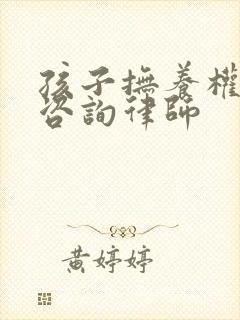 孩子撫養權
咨詢律師
黃婷婷